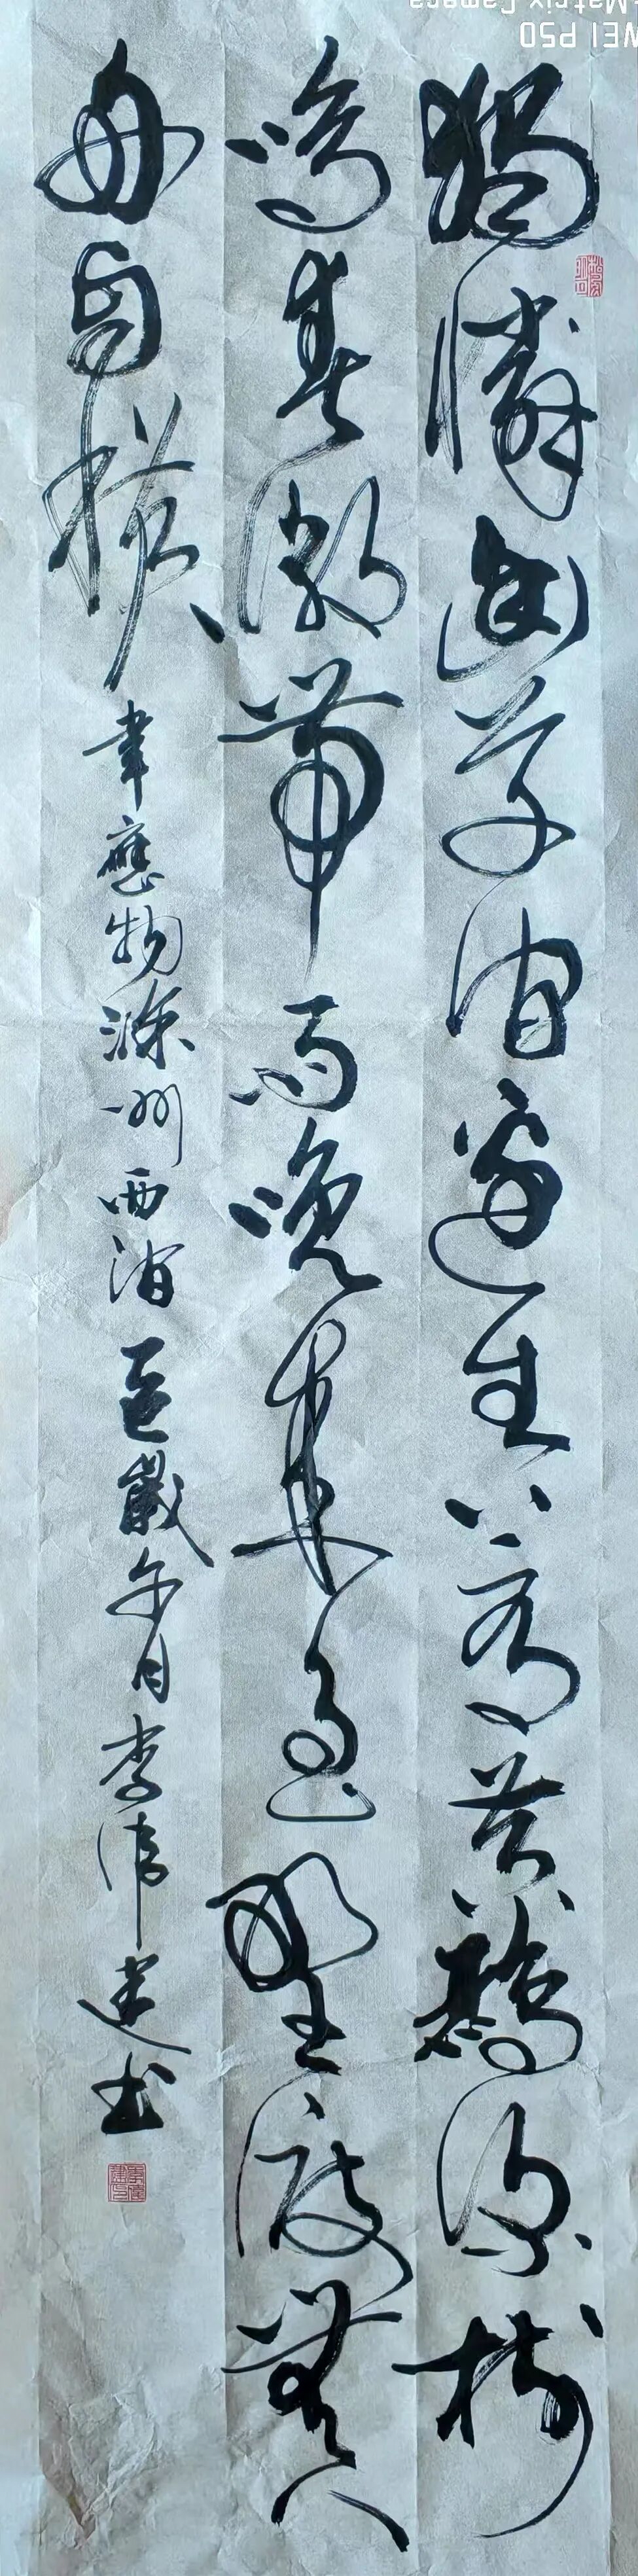 獨憐幽草澗邊生上有黃鸝深樹
鳴春潮帶雨晚來急野渡無人
舟自橫
韋應物滁州西澗 乙巳歲午月李偉建書
WEI P50
-Matrix Camera